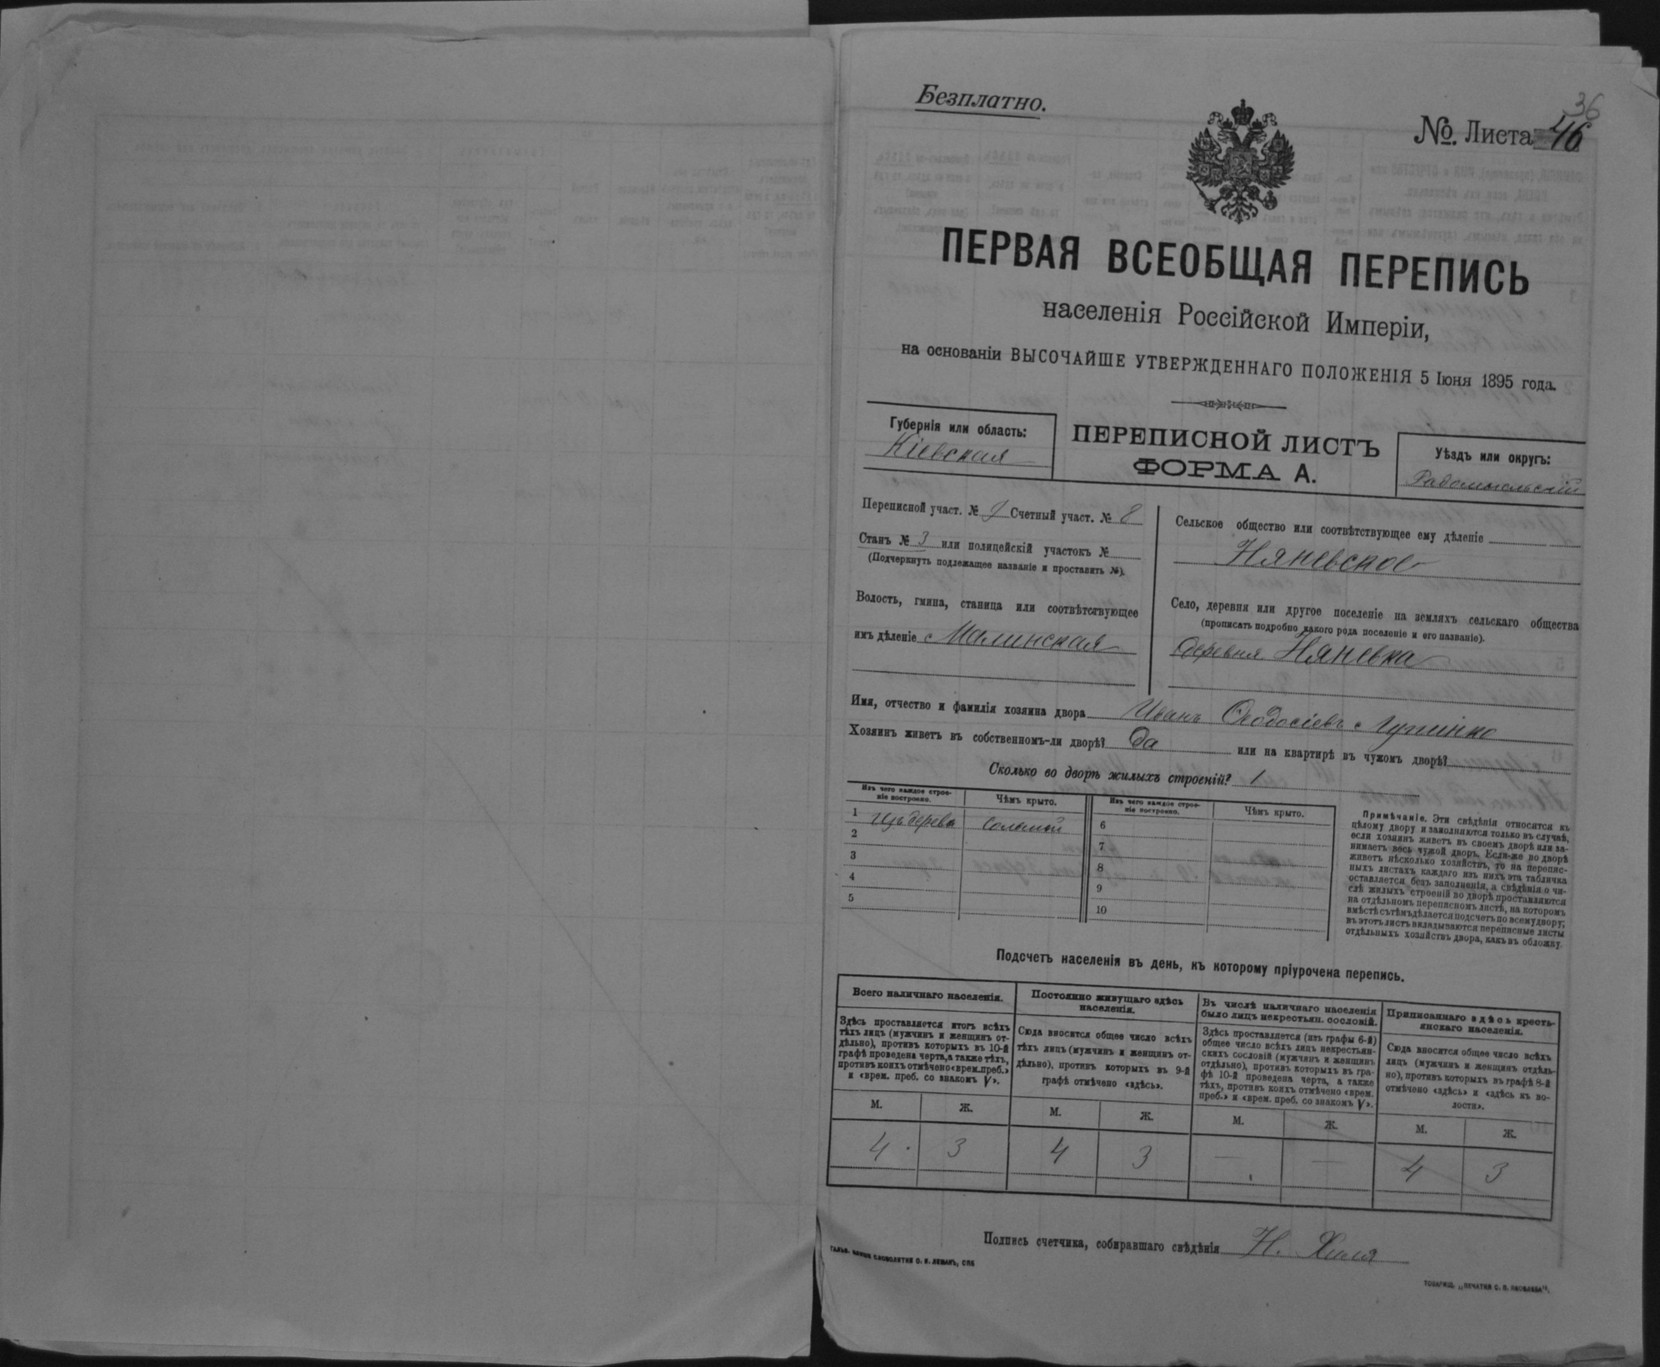 Безплатно.
36
№. Листа 46
ПЕРВАЯ ВСЕОБЩАЯ ПЕРЕПИСЬ
населенія Россійской Имперіи,
на основаніи ВЫСОЧАЙШЕ УТВЕРЖДЕННАГО ПОЛОЖЕНІЯ 5 Іюня 1895 года.
Губернія или область:
Кіевская
ПЕРЕПИСНОЙ ЛИСТЪ
ФОРМА А.
Уѣздъ или округъ:
Радомысльскій
Переписной участ. № Счетный участ. № 8
Станъ № 3 или полицейскій участокъ №
(Подчеркнуть подлежащее названіе и проставить №).
Волость, гмина, станица или соотвѣтствующее
имъ дѣленіе Малинская
Сельское общество или соотвѣтствующее ему дѣленіе
Няневское
Село, деревня или другое поселеніе на земляхъ сельскаго общества
(прописать подробно какого рода поселеніе и его названіе).
деревня Няневка
Имя, отчество и фамилія хозяина двора Иванъ Ѳеодосіевъ
Хозяинъ живетъ въ собственномъ-ли дворѣ? Да или на квартирѣ въ чужомъ дворѣ?
Сколько во дворѣ жилыхъ строеній? 1
Изъ чего каждое строе-
ніе построено.
Чѣмъ крыто.
1 изъ дерева соломой
2
3
4
5
Изъ чего каждое строе-
ніе построено.
Чѣмъ крыто.
6
7
8
9
10
Примѣчаніе. Эти свѣдѣнія относятся къ
цѣлому двору и заполняются только въ случаѣ,
если хозяинъ живетъ въ своемъ дворѣ или за-
нимаетъ весь чужой дворъ. Если-же во дворѣ
живетъ нѣсколько хозяйствъ, то на перепис-
ныхъ листахъ каждаго изъ нихъ эта табличка
оставляется безъ заполненія, а свѣдѣнія о чи-
слѣ жилыхъ строеній во дворѣ проставляются
на отдѣльномъ переписномъ листѣ, на которомъ
вмѣстѣ съ тѣмъ дѣлается подсчетъ по всему двору;
въ этотъ листъ вкладываются переписные листы
отдѣльныхъ хозяйствъ двора, какъ въ обложку.
Подсчетъ населенія въ день, къ которому пріурочена перепись.
Всего наличнаго населенія.
Здѣсь проставляется итогъ всѣхъ
тѣхъ лицъ (мужчинъ и женщинъ от-
дѣльно), противъ которыхъ въ 10-й
графѣ проведена черта, а также тѣхъ,
противъ коихъ отмѣчено «врем. преб.»
и «врем. преб. со знакомъ V».
М. Ж.
4 3
Постоянно живущаго здѣсь
населенія.
Сюда вносится общее число всѣхъ
тѣхъ лицъ (мужчинъ и женщинъ от-
дѣльно), противъ которыхъ въ 9-й
графѣ отмѣчено «здѣсь».
М. Ж.
4 3
Въ числѣ наличнаго населенія
было лицъ некрестьян. сословій.
Здѣсь проставляется (изъ графы 6-й)
общее число всѣхъ лицъ некрестьян-
скихъ сословій (мужчинъ и женщинъ
отдѣльно), противъ которыхъ въ гра-
фѣ 10-й проведена черта, а также
тѣхъ, противъ коихъ отмѣчено «врем.
преб.» и «врем. преб. со знакомъ V».
М. Ж.
— —
Приписаннаго здѣсь кресть-
янскаго населенія.
Сюда вносится общее число всѣхъ
лицъ (мужчинъ и женщинъ отдѣль-
но), противъ которыхъ въ графѣ 8-й
отмѣчено «здѣсь» и «здѣсь въ во-
лости».
М. Ж.
4 3
Подпись счетчика, собиравшаго свѣдѣнія Н.